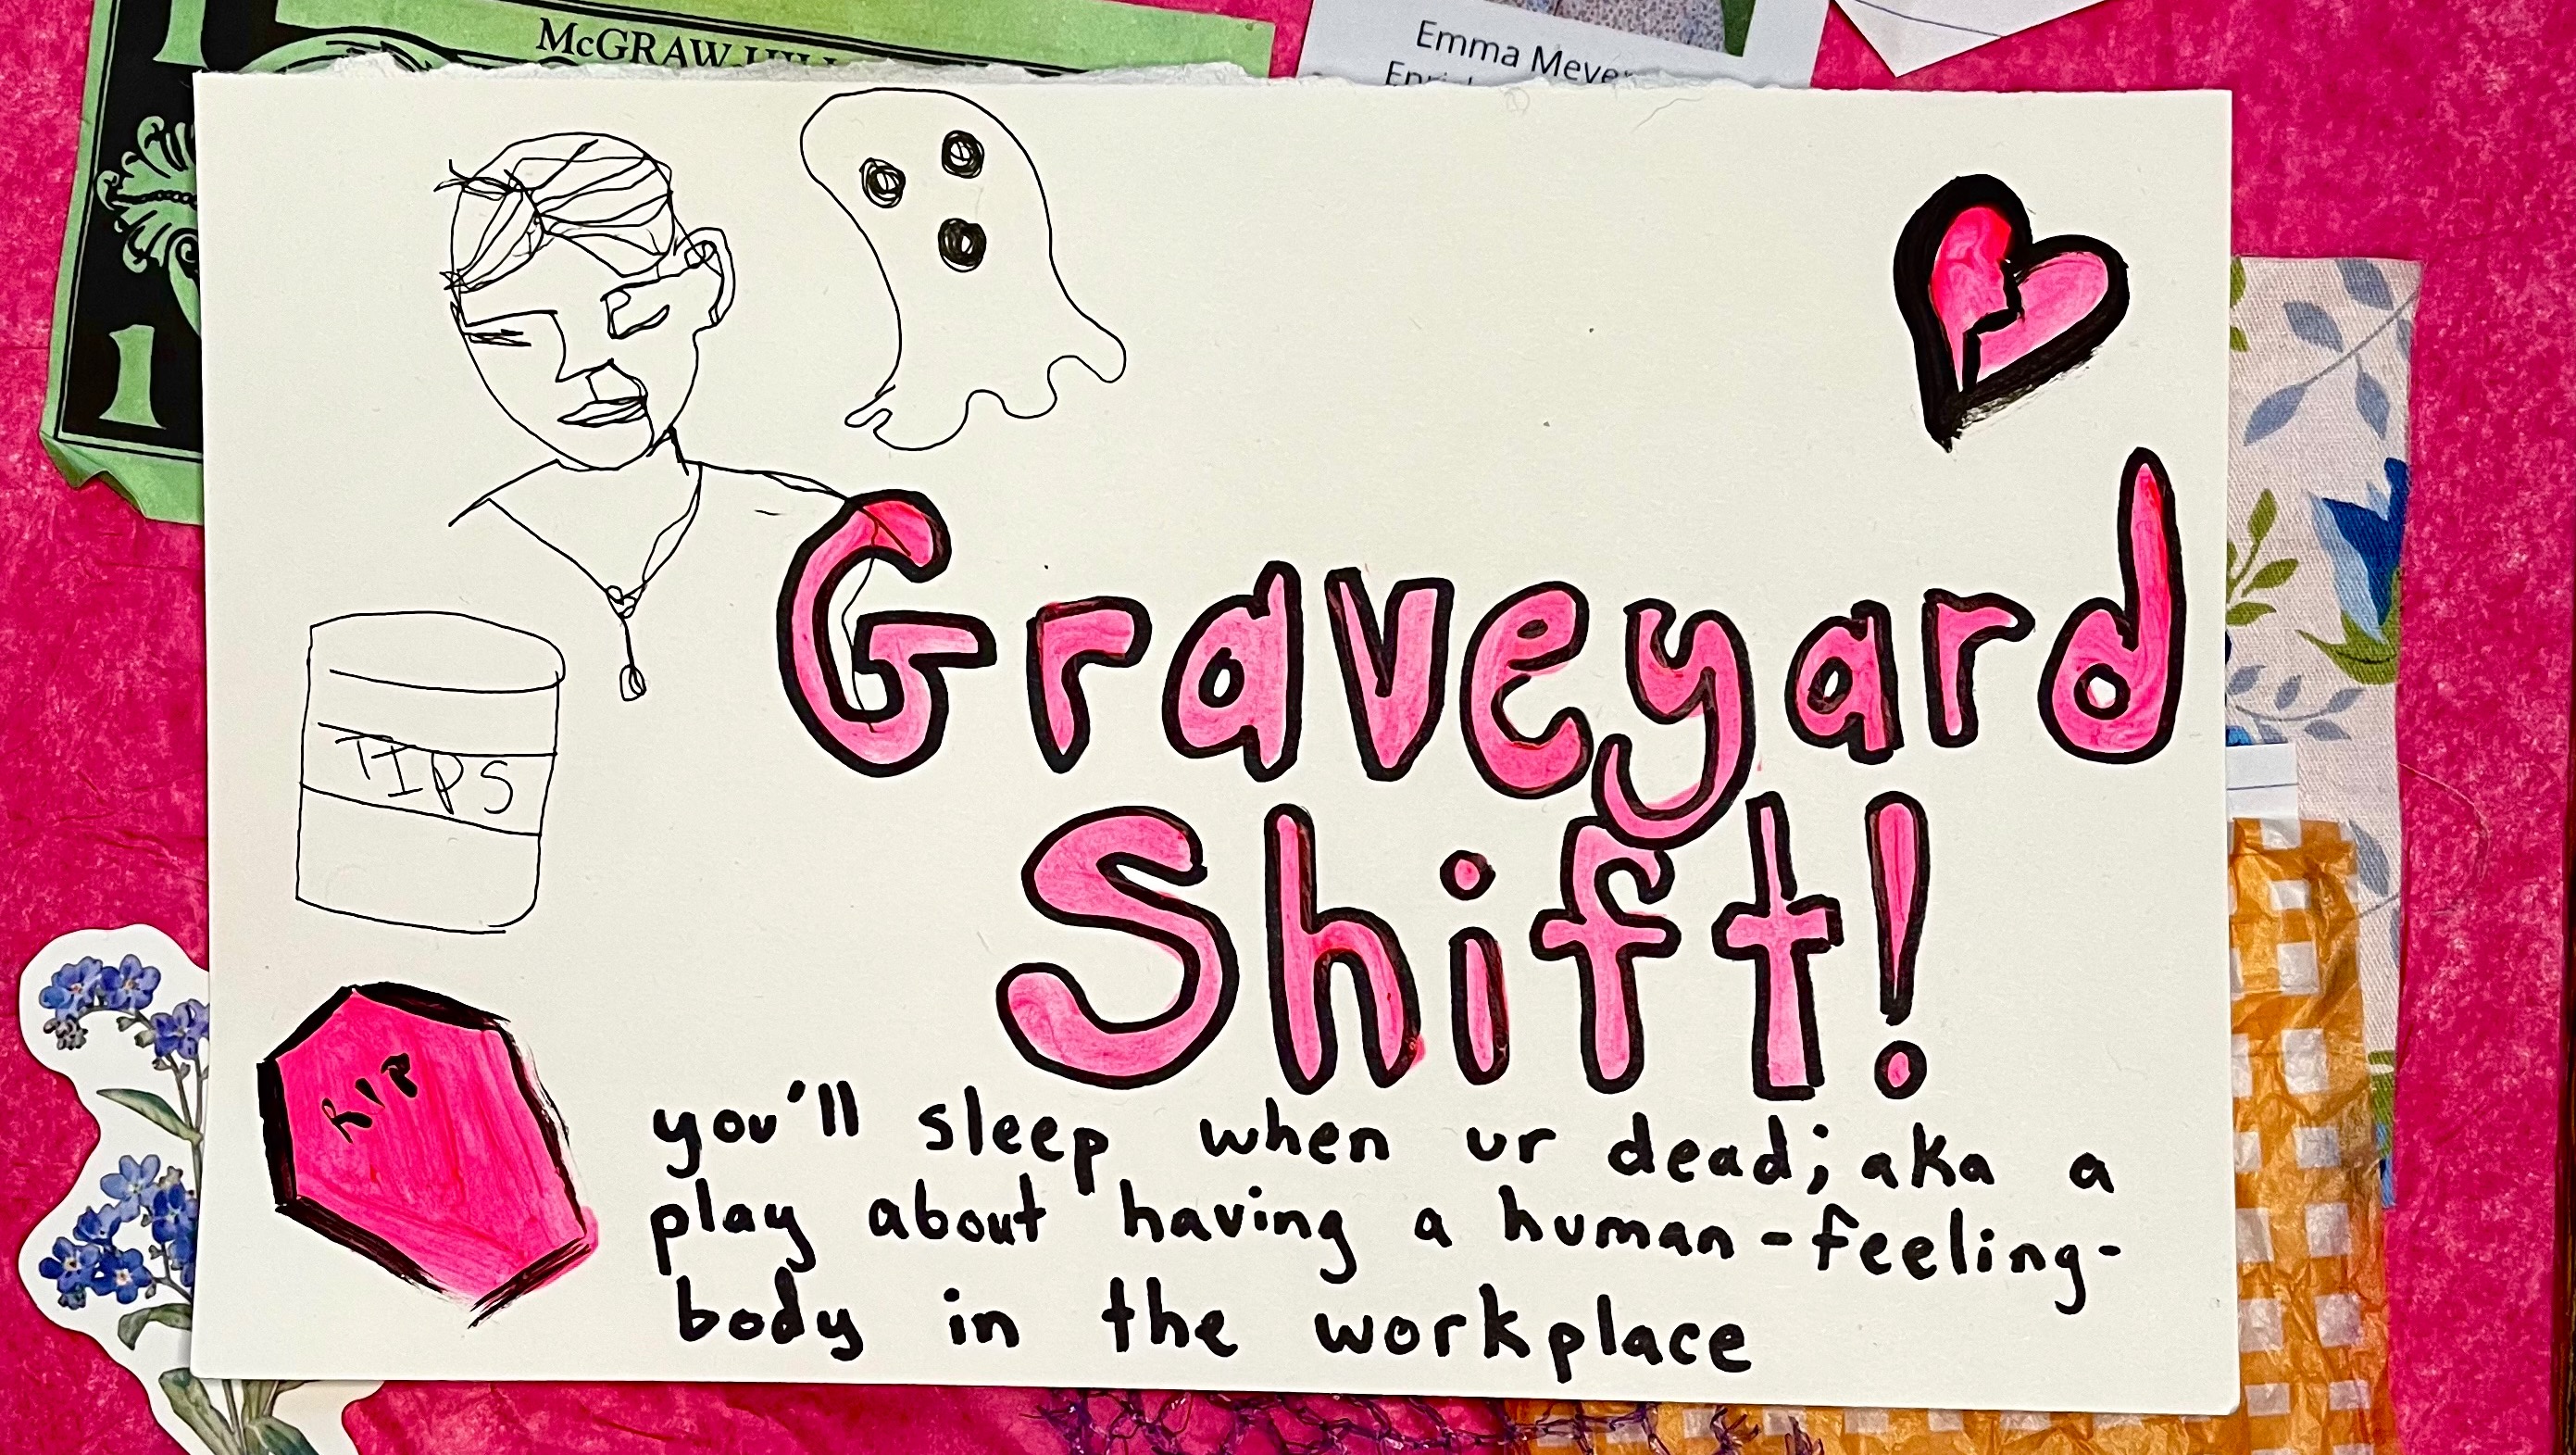 McGRAW-HILL
1
Emma Meyer
TIPS
RIP
Graveyard
Shift!
you'll sleep when ur dead; aka a
play about having a human-feeling-
body in the workplace